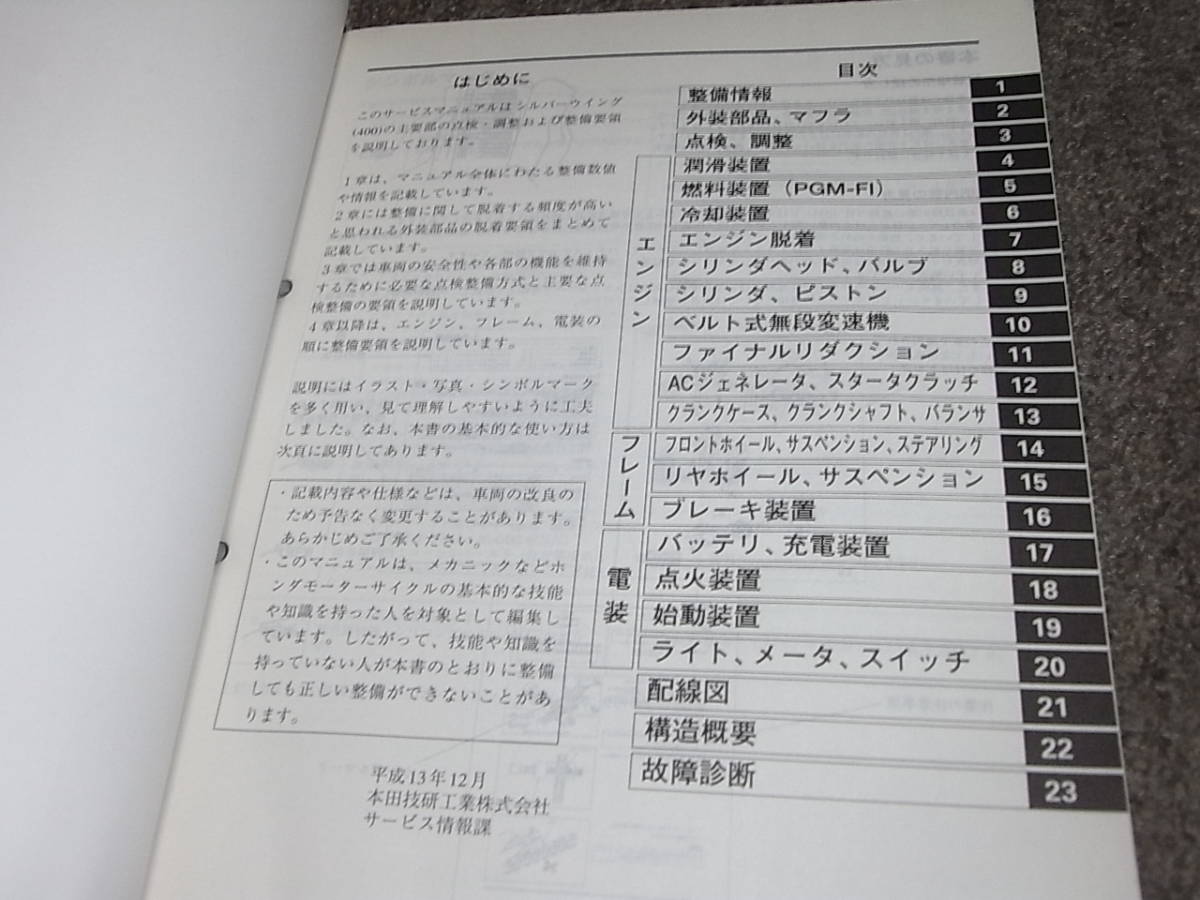 はじめに
このサービスマニュアルは シルバーウイング
(400)の主要部の点検・調整および整備要領
を説明しております。
1章は、マニュアル全体にわたる整備数値
や情報を記載しています。
2章には整備に関して脱着する頻度が高い
と思われる外装部品の脱着要領をまとめて
記載しています。
3章では車両の安全性や各部の機能を維持
するために必要な点検整備方式と主要な点
検整備の要領を説明しています。
4章以降は、エンジン、フレーム、電装の
順に整備要領を説明しています。
説明にはイラスト・写真・シンボルマーク
を多く用い、見て理解しやすいように工夫
しました。なお、本書の基本的な使い方は
次頁に説明してあります。
・記載内容や仕様などは、車両の改良の
ため予告なく変更することがあります。
あらかじめご了承ください。
・このマニュアルは、メカニックなどホ
ンダモーターサイクルの基本的な技能
や知識を持った人を対象として編集し
ています。したがって、技能や知識を
持っていない人が本書のとおりに整備
しても正しい整備ができないことがあ
ります。
平成13年12月
本田技研工業株式会社
サービス情報課
目次
整備情報 1
外装部品、マフラ 2
点検、調整 3
エンジン
潤滑装置 4
燃料装置（PGM-FI） 5
冷却装置 6
エンジン脱着 7
シリンダヘッド、バルブ 8
シリンダ、ピストン 9
ベルト式無段変速機 10
ファイナルリダクション 11
ACジェネレータ、スタータクラッチ 12
クランクケース、クランクシャフト、バランサ 13
フレーム
フロントホイール、サスペンション、ステアリング 14
リヤホイール、サスペンション 15
ブレーキ装置 16
電装
バッテリ、充電装置 17
点火装置 18
始動装置 19
ライト、メータ、スイッチ 20
配線図 21
構造概要 22
故障診断 23